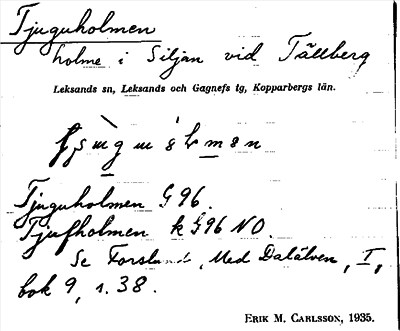 Tjuguholmen
holme i Siljan vid Tällberg
Leksands sn, Leksands och Gagnefs tg, Kopparbergs län.
Tjuguholmen G96.
Tjufholmen k G96 NO.
Se Forslund, Med Dalälven, I,
bok 9, s. 38.
ERIK M. CARLSSON, 1935.